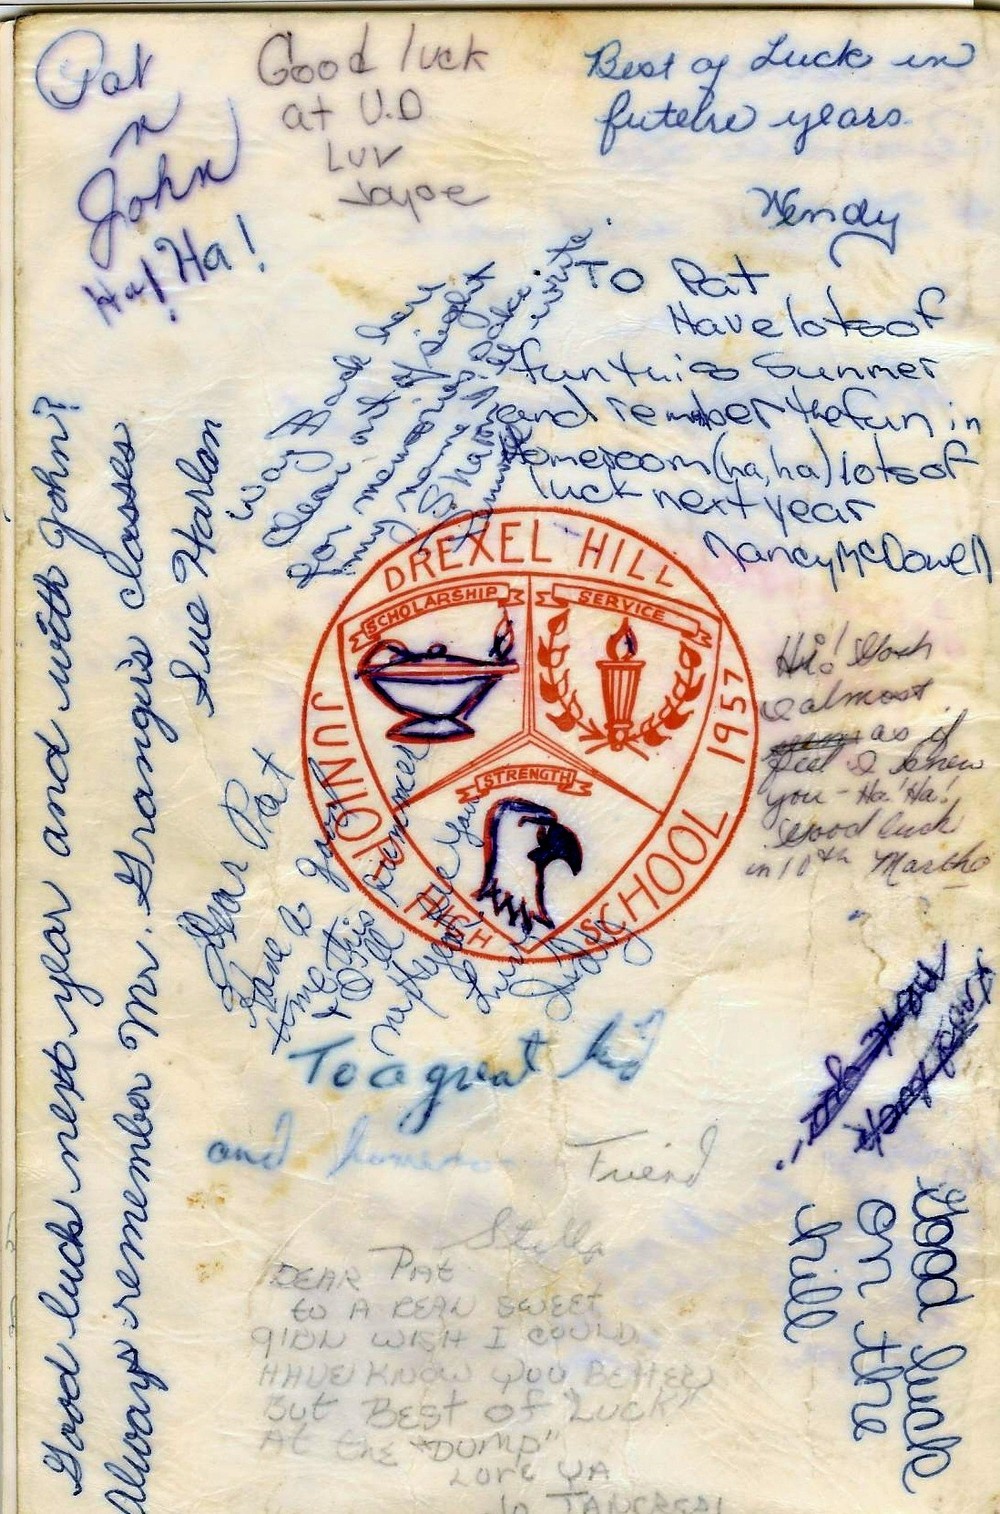 Pat
n
John
Ha! Ha!
Good luck
at U.D
Luv
Best of Luck in
future years
Wendy
To Pat
Have lots of
fun this Summer
and remember the fun in
Homeroom (ha, ha) lots of
luck next year
Nancy McDowell
way Back here
Clear out of sight
for memories sake
my name I'll write
Sharon
Good luck next year and with John?
Always remember Mr. Grangis classes
Sue Harlan
DREXEL HILL
JUNIOR HIGH
SCHOOL 1957
SCHOLARSHIP
SERVICE
STRENGTH
Hi! Gosh
I almost
as if
feel I knew
you - Ha! Ha!
Good luck
in 10th Martha
Dear Pat
Have a good
time this
Love
Judy
To a great kid
and
Friend
Stella
Good luck
on the
hill
DEAR PAT
to A REAL SWEET
GIRL WISH I COULD
HAVE KNOW YOU BETTER
But BEST of "LUCK"
At the "DUMP"
LOVE YA
Jo